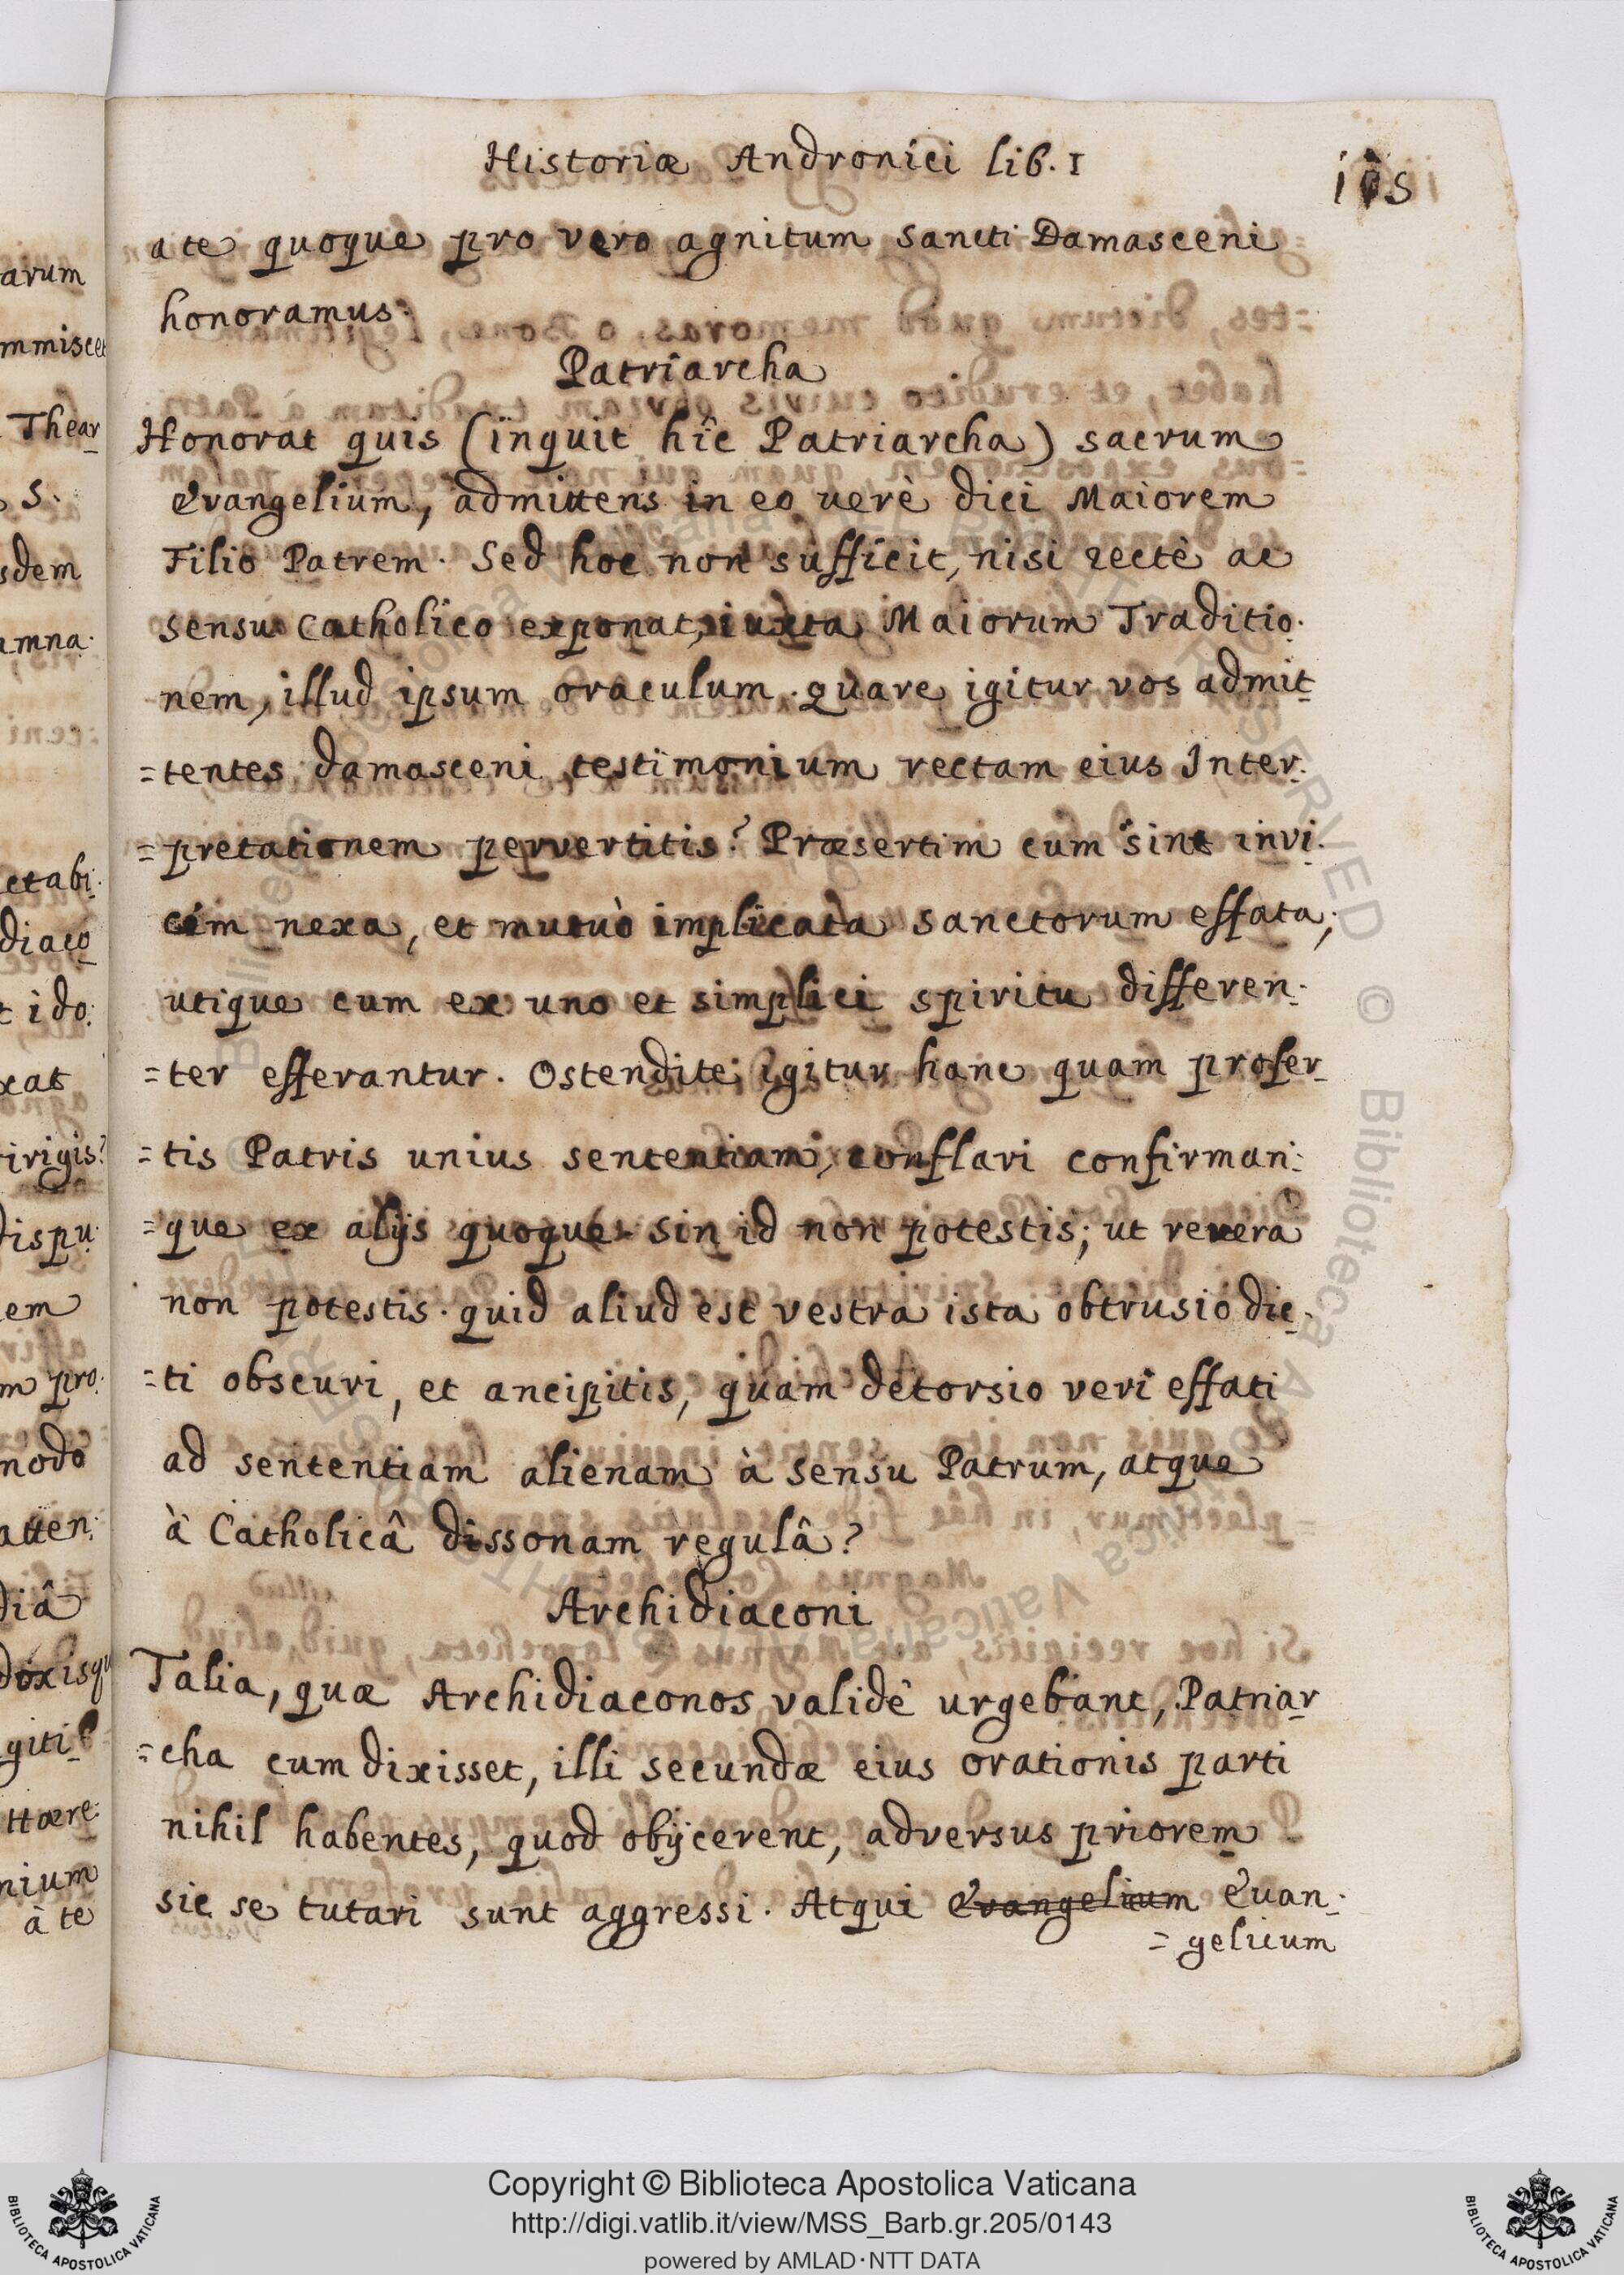 Historiæ Andronici lib. 1
a te quoque pro vero agnitum sancti Damasceni
honoramus.
Patriarcha
Honorat quis (inquit hîc Patriarcha) sacrum
Evangelium, admittens in eo uerè dici Maiorem
Filio Patrem. Sed hoc non sufficit, nisi rectè ac
sensu Catholico exponat, iuxta Maiorum Traditio-
nem, illud ipsum oraculum. quare igitur vos admit-
=tentes damasceni testimonium rectam eius Inter-
=pretationem pervertitis? Præsertim cum sint invi-
cem nexa, et mutuò implicata sanctorum effata,
utique cum ex uno et simplici spiritu differen-
=ter efferantur. Ostendite igitur hanc quam profer-
=tis Patris unius sententiam, conflari confirmari-
=que ex alijs quoque. sin id non potestis; ut reverà
non potestis. quid aliud est vestra ista obtrusio dic-
=ti obscuri, et ancipitis, quam detorsio veri effati
ad sententiam alienam à sensu Patrum, atque
à Catholicâ dissonam regulâ?
Archidiaconi
Talia, quæ Archidiaconos validè urgebant, Patriar-
=cha cum dixisset, illi secundæ eius orationis parti
nihil habentes, quod obijcerent, adversus priorem
sic se tutari sunt aggressi. Atqui Evangelium Euan-
=gelium
arum
mmiscet
Thear
S.
sdem
amna-
etabi-
diaco
t ido-
xat
irigis?
dispu-
em
m pro-
modo
atten-
diâ
doxisqu
giti-
Hære-
nium
à te
Copyright © Biblioteca Apostolica Vaticana
http://digi.vatlib.it/view/MSS_Barb.gr.205/0143
powered by AMLAD·NTT DATA
BIBLIOTECA APOSTOLICA VATICANA
BIBLIOTECA APOSTOLICA VATICANA